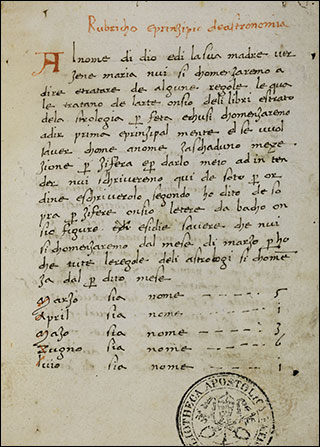 Rubricho eprinzipio de astronomia
Al nome di dio edi la sua madre ver
zene maria nui si chomenzaremo a
dire etratare de algune regole le qua
le tratano de larte onsio deli libri estrato
dela strologia per
adir prima eprinzipal mente el se vuol
saver chome anome zaschaduno meze
zione per zifera e per darlo meio ad in ten
der nui schriveremo qui de soto per or
dine eschriverolo segondo ho dito de so
pra per zifere onsio letere da bacho on
sio figure esidie savere che nui
si chomenzaremo dal mese di marzo per ho
che vite le regole deli astrologi si chome
za dal per dito mese
Marzo sia nome 5
April sia nome 1
Mazo sia nome 3
Zugno sia nome 6
luio sia nome 1
BIBLIOTHECA APOSTOLIC